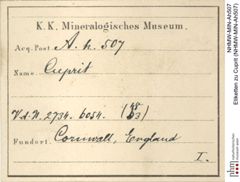 K. K. Mineralogisches Museum.
Acq. Post. A. h. 507
Name. Cuprit
V. d. N. 2734. 6054.
Fundort: Cornwall, England
I.
NHMW-MIN-Ah507
Etiketten zu Cuprit (NHMW-MIN-Ah507)
nhm